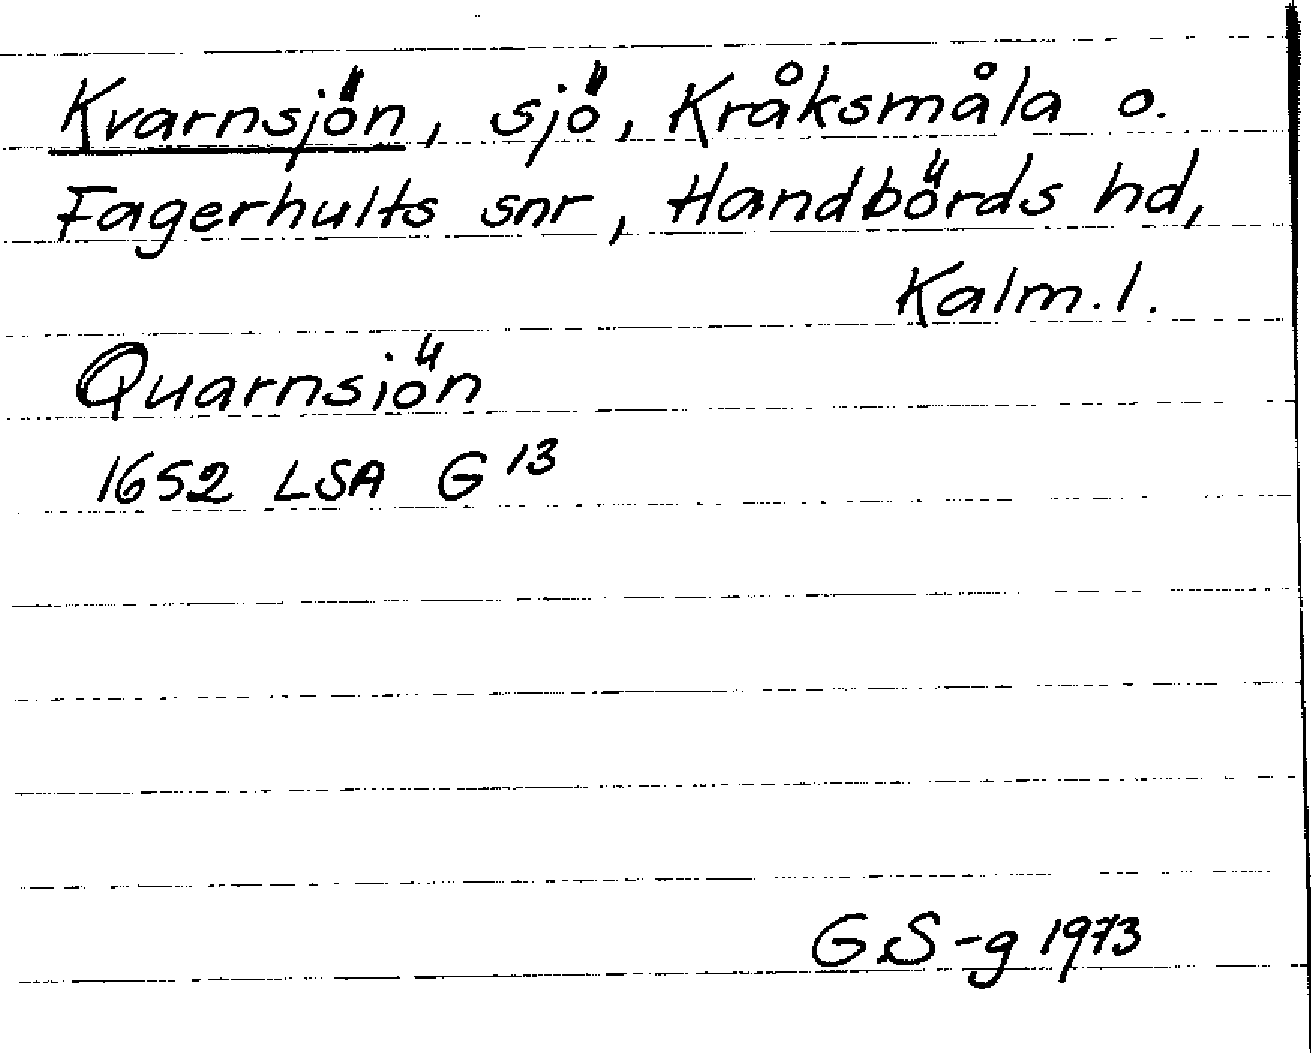 Kvarnsjön, sjö, Kråksmåla o.
Fagerhults snr, Handbörds hd,
Kalm. l.
Quarnsiön
1652 LSA G 13
G.S-g 1973